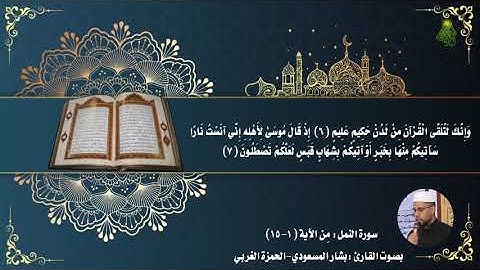 وَإِنَّكَ لَتُلَقَّى الْقُرْآنَ مِنْ لَدُنْ حَكِيمٍ عَلِيمٍ (٦) إِذْ قَالَ مُوسَى لِأَهْلِهِ إِنِّي آنَسْتُ نَارًا
سَآتِيكُمْ مِنْهَا بِخَبَرٍ أَوْ آتِيكُمْ بِشِهَابٍ قَبَسٍ لَعَلَّكُمْ تَصْطَلُونَ (٧)
سورة النمل : من الآية (١-١٥)
بصوت القارئ : بشار المسعودي-الحمزة الغربي